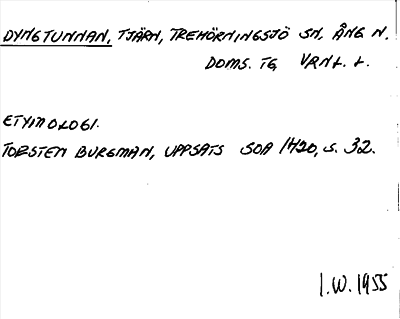 DYNGTUNNAN, TJÄRN, TREHÖRNINGSJÖ SN, ÅNG N.
DOMS. TG VRNL. L.
ETYMOLOGI.
TORSTEN BURGMAN, UPPSATS SOA 1420, S. 32.
I.W. 1955